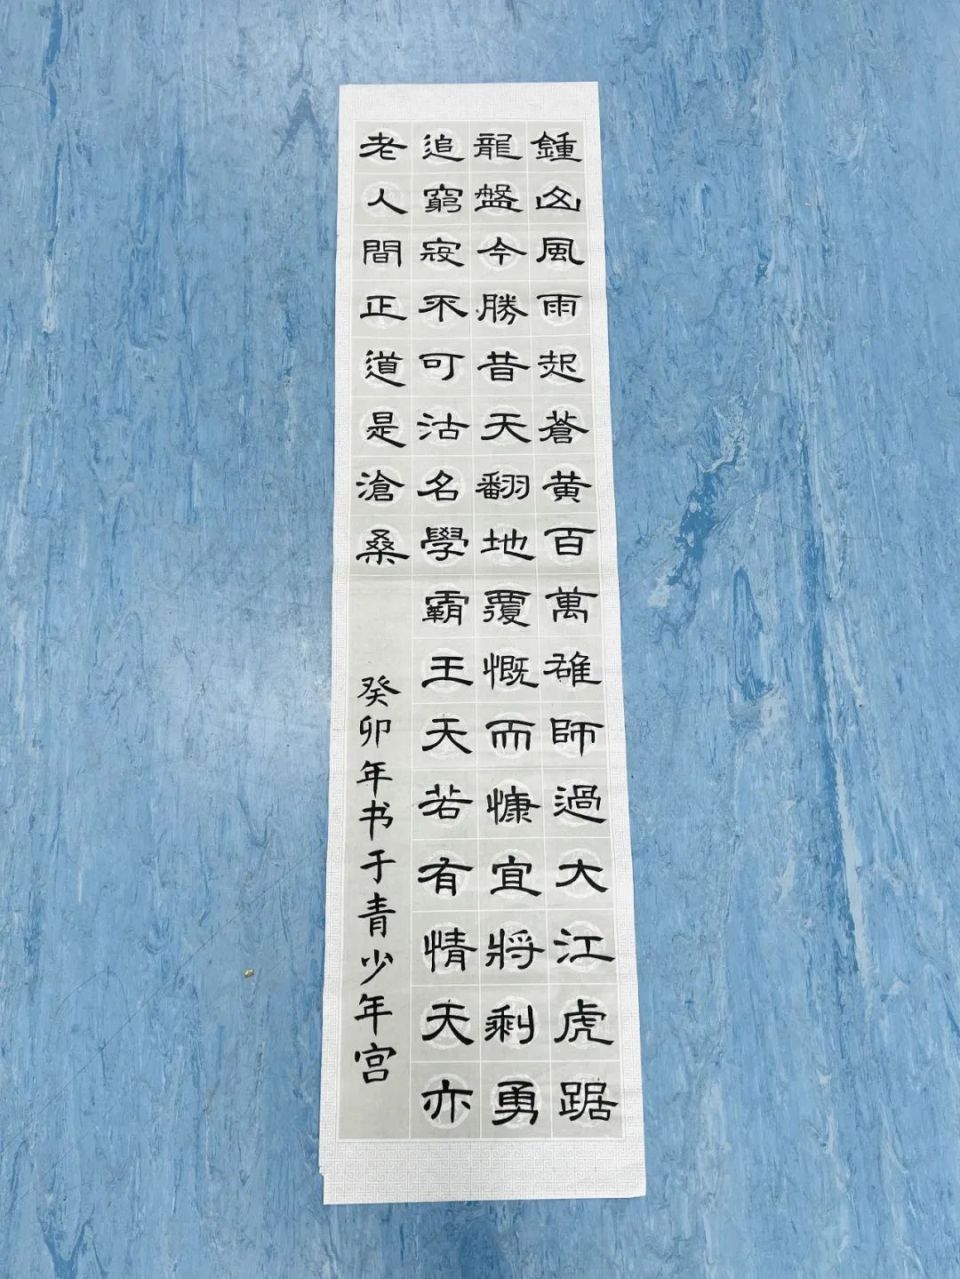 鍾山風雨起蒼黄百萬雄師過大江虎踞
龍盤今勝昔天翻地覆慨而慷宜將剩勇
追窮寇不可沽名學霸王天若有情天亦
老人間正道是滄桑
癸卯年书于青少年宫